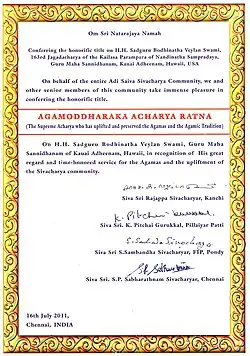 Om Sri Natarajaya Namah
Conferring the honorific title on H.H. Sadguru Bodhinatha Veylan Swami,
163rd Jagadacharya of the Kailasa Parampara of Nandinatha Sampradaya,
Guru Maha Sannidhanam, Kauai Adheenam, Hawaii, USA
On behalf of the entire Adi Saiva Sivacharya Community, we and
other senior members of this community take immense pleasure in
conferring the honorific title.
AGAMODDHARAKA ACHARYA RATNA
(The Supreme Acharya who has uplifted and preserved the Agamas and the Agamic Tradition)
On H.H. Sadguru Bodhinatha Veylan Swami, Guru Maha
Sannidhanam of Kauai Adheenam, Hawaii, in recognition of His great
regard and time-honored service for the Agamas and the upliftment of
the Sivacharya community.
Siva Sri Rajappa Sivacharyar, Kanchi
K. Pitchai
Siva Sri. K. Pitchai Gurukkal, Pillaiyar Patti
S. Sambandha Sivacharya
Siva Sri S.Sambandha Sivacharyar, FIP, Pondy
Siva Sri. S.P. Sabharathnam Sivacharyar, Chennai
16th July 2011,
Chennai, INDIA